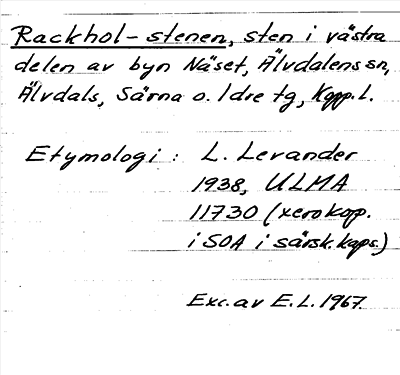 Rackhol-stenen, sten i västra
delen av byn Näset, Älvdalens sn,
Älvdals, Särna o. Idre tg, Kopp. l.
Etymologi: L. Levander
1938, ULMA
11730 (xerokop.
i SOA i särsk. kaps.)
Exc. av E. L. 1967.